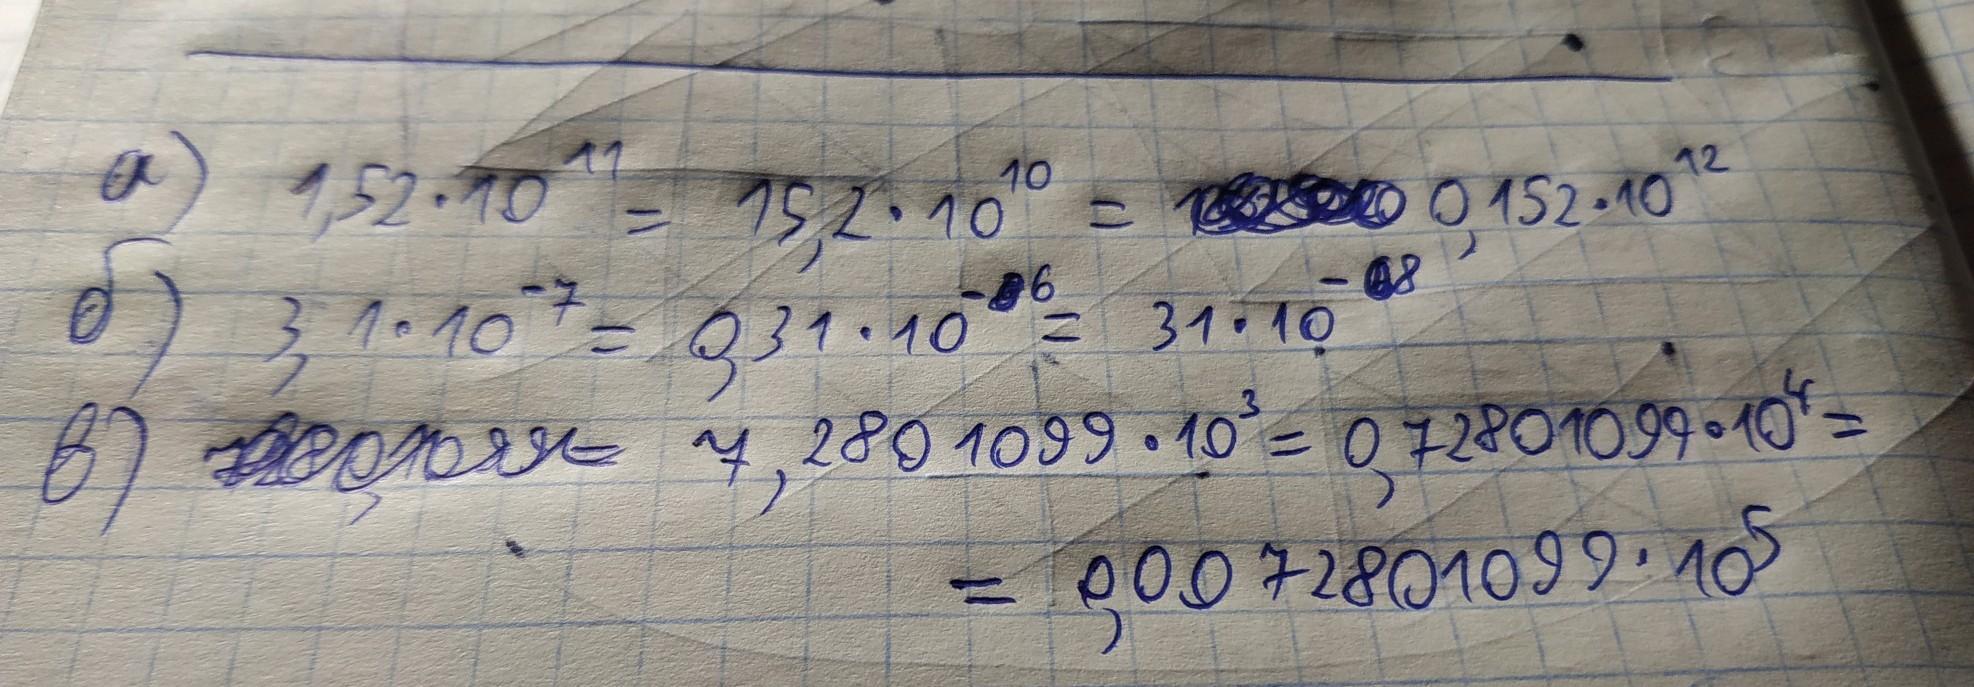 а) 1,52·10¹¹ = 15,2·10¹⁰ = 0,152·10¹²
б) 3,1·10⁻⁷ = 0,31·10⁻⁶ = 31·10⁻⁸
в) 7,2801099·10³ = 0,72801099·10⁴ =
= 0,0072801099·10⁵